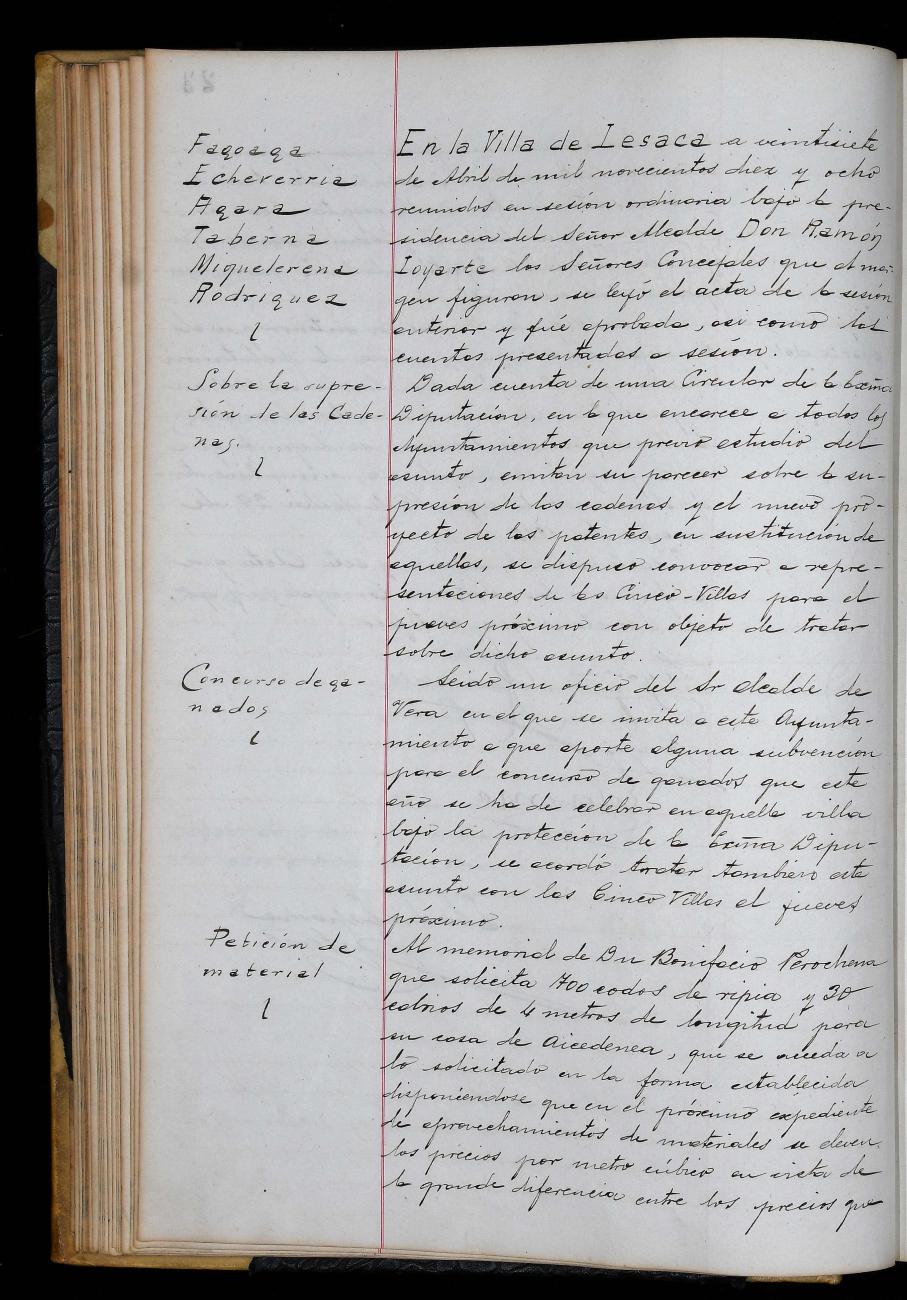 Fagoaga
Echeverria
Agara
Taberna
Miquelerena
Rodriguez
En la Villa de Lesaca a veintisiete
de Abril de mil novecientos diez y ocho
reunidos en sesión ordinaria bajo la pre-
sidencia del Señor Alcalde Don Ramón
Loyarte los Señores Concejales que al mar-
gen figuran, se leyó el acta de la sesión
anterior y fué aprobada, asi como las
cuentas presentadas a sesión.
Sobre la supre-
sión de las Cade-
nas.
Dada cuenta de una Circular de la Excma
Diputación, en la que encarece a todos los
Ayuntamientos que previo estudio del
asunto, emitan su parecer sobre la su-
presión de las cadenas y el nuevo pro-
yecto de las patentes, en sustitución de
aquellas, se dispuso convocar a repre-
sentaciones de las Cinco-Villas para el
jueves próximo con objeto de tratar
sobre dicho asunto.
Concurso de ga-
nados
Leido un oficio del Sr Alcalde de
Vera en el que se invita a este Ayunta-
miento a que aporte alguna subvención
para el concurso de ganados que este
año se ha de celebrar en aquella villa
bajo la protección de la Excma Dipu-
tación, se acordó tratar tambien este
asunto con las Cinco Villas el jueves
próximo.
Petición de
material
Al memorial de Dn Bonifacio Perochena
que solicita 700 codos de ripia y 30
cabrios de 4 metros de longitud para
su casa de Aicedenea, que se acceda a
lo solicitado en la forma establecida
disponiéndose que en el próximo expediente
de aprovechamientos de materiales se eleven
los precios por metro cúbico en vista de
la grande diferencia entre los precios que